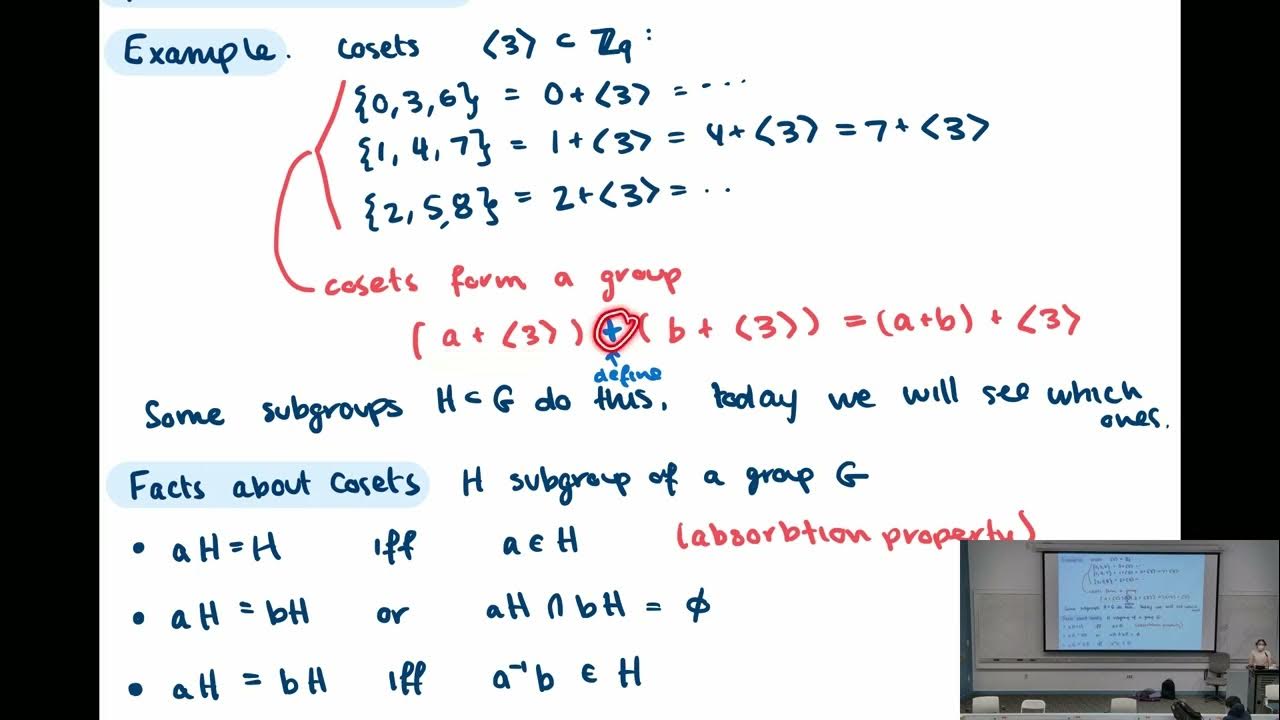 Example. cosets ⟨3⟩ ⊂ ℤ₉ :
{0,3,6} = 0+⟨3⟩ = ...
{1,4,7} = 1+⟨3⟩ = 4+⟨3⟩ = 7+⟨3⟩
{2,5,8} = 2+⟨3⟩ = ..
cosets form a group
( a + ⟨3⟩ ) + ( b + ⟨3⟩ ) = (a+b) + ⟨3⟩
↑
define
Some subgroups H ⊂ G do this, today we will see which
ones.
Facts about Cosets H subgroup of a group G
• aH = H iff a ∈ H (absorbtion property)
• aH = bH or aH ∩ bH = ∅
• aH = bH iff a⁻¹b ∈ H